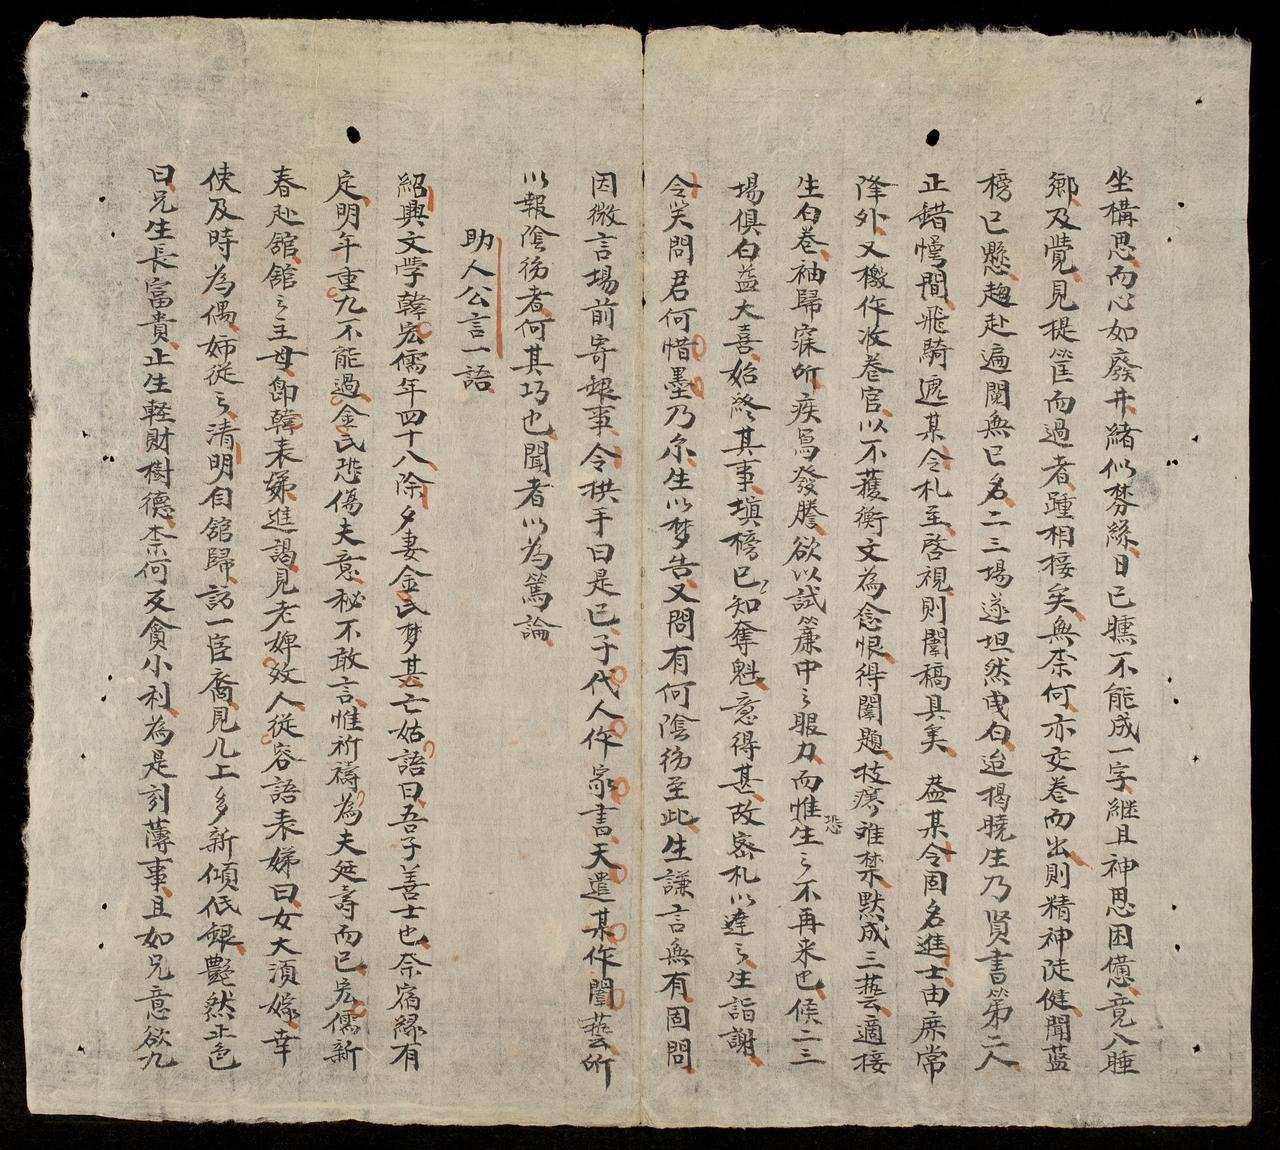 坐構思而心如廢井緒似棼絲日已曛不能成一字継且神思困憊竟入睡
鄉及覺見提筐而過者踵相接矣無柰何亦交卷而出則精神陡健聞藍
榜已懸趨赴遍閱無已名二三場遂坦然曳白迨揭曉生乃賢書第二人
正錯愕間飛騎遞某令札至啓視則闈稿具矣盖某令固名進士由庶常
降外又檄作收卷官以不獲衡文為念恨得闈題技癢难禁默成三藝適接
生白卷袖歸寐所疾寫發謄欲以試簾中之眼力而惟恐生之不再来也候二三
場俱白益大喜始終其事填榜已知奪魁意得甚故宻札以達之生詣謝
令笑問君何惜墨乃尔生以梦告又問有何隂徳至此生謙言無有固問
因微言場前寄銀事令拱手曰是已子代人作家書天遣某作闈藝所
以報隂徳者何其巧也聞者以為篤論
助人公言一語
紹興文學韓宏儒年四十八除夕妻金氏梦其亡姑語曰吾子善士也柰宿緣有
定明年重九不能過金氏恐傷夫意秘不敢言惟祈禱為夫延壽而已宏儒新
春赴舘舘之主母即韓表娣進謁見老婢效人從容語表娣曰女大湏嫁幸
使及時為偶姉從之清明自舘歸訪一宦裔見几上多新傾低銀艷然正色
曰兄生長富貴止生輕財樹德柰何反貪小利為是刻薄事且如兄意欲九